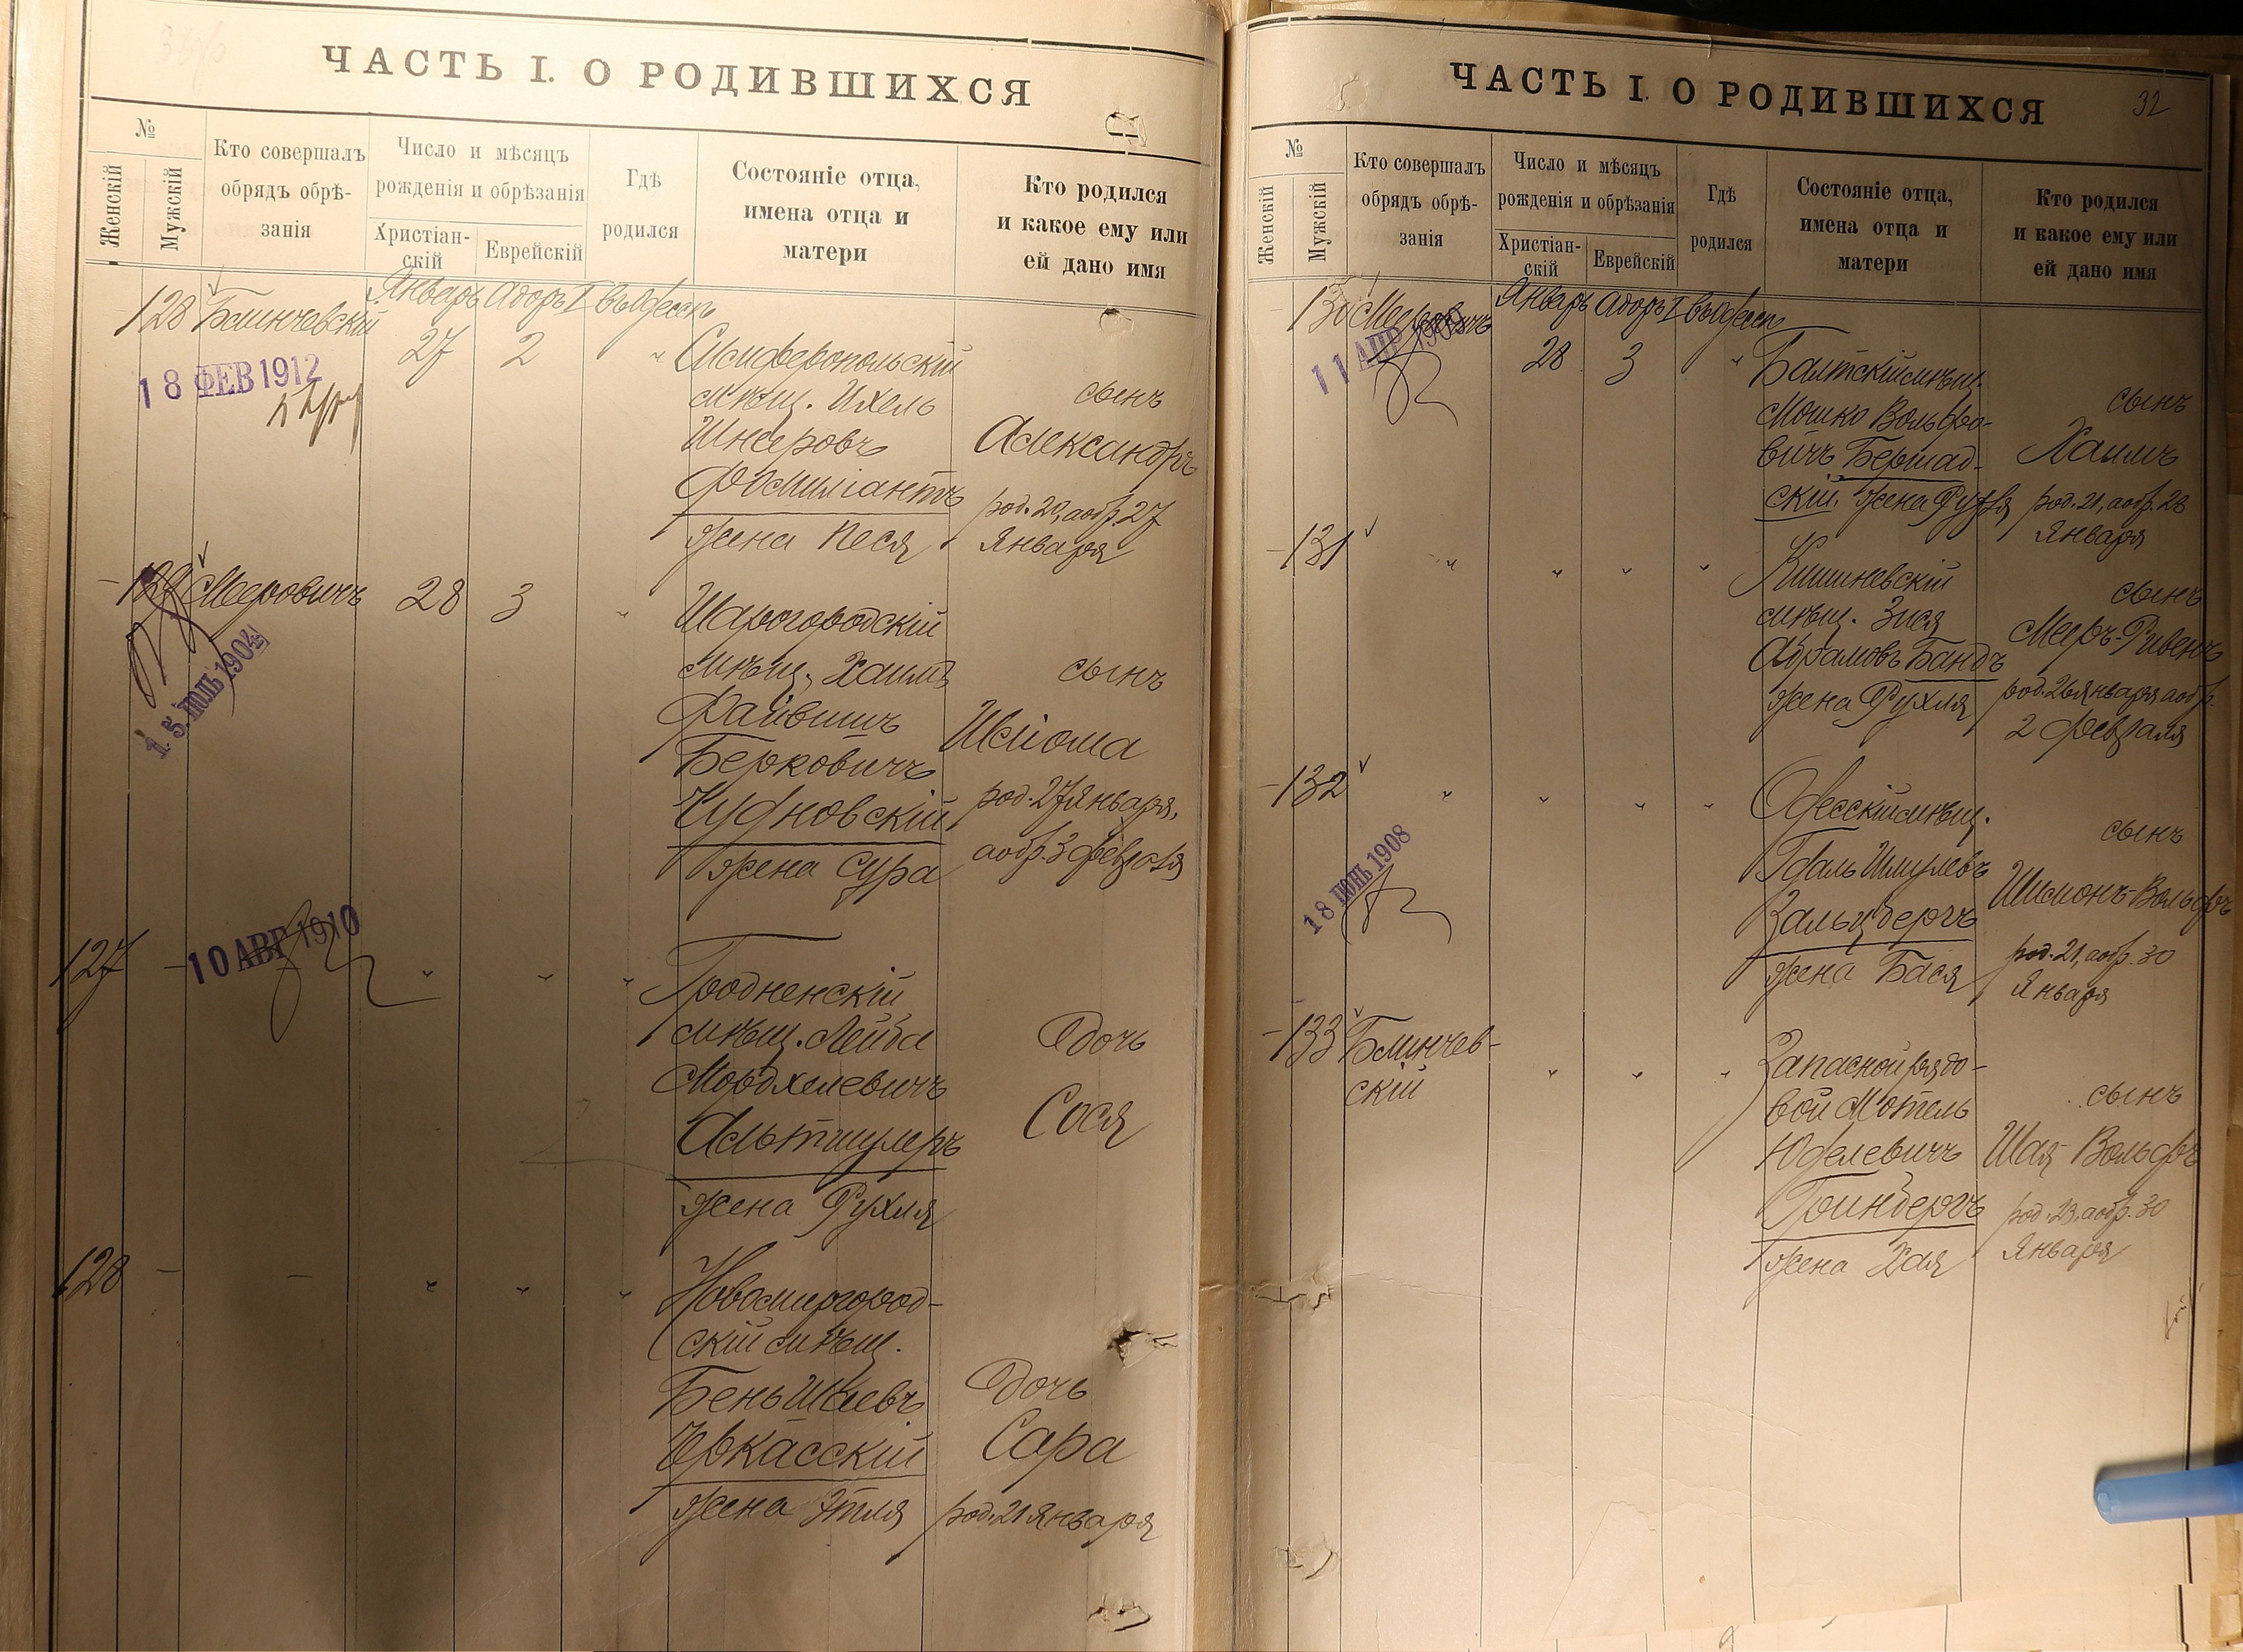 ЧАСТЬ I. О РОДИВШИХСЯ
№
Женскій
Мужскій
Кто совершалъ
обрядъ обрѣ-
занія
Число и мѣсяцъ
рожденія и обрѣзанія
Христіан-
скій
Еврейскій
Гдѣ
родился
Состояніе отца,
имена отца и
матери
Кто родился
и какое ему или
ей дано имя
128 Блинчевскій Январь Адоръ I въ Одессѣ
27 2 "
18 ФЕВ 1912
Симферопольскій
мѣщ. Ихель
Шнеровъ
жена Песя
сынъ
Александръ
род. 20, а обр. 27
Января
129 Мееровичъ 28 3 "
15 ІЮЛЬ 1904
Шарогородскій
мѣщ. Хаимъ
Файвишъ
Берковичъ
Чудновскій
жена Сура
сынъ
Шліома
род. 27 Января,
а обр. 3 февраля
127 - " " "
10 АВГ 1910
Гродненскій
мѣщ. Лейба
Мордхелевичъ
Альтшулеръ
жена Рухля
дочь
Сося
128 - - " " "
Новомиргород-
скій мѣщ.
Бень Шаевъ
Черкасскій
жена Этля
дочь
Сара
род. 21 Января
ЧАСТЬ I. О РОДИВШИХСЯ 32
№
Женскій
Мужскій
Кто совершалъ
обрядъ обрѣ-
занія
Число и мѣсяцъ
рожденія и обрѣзанія
Христіан-
скій
Еврейскій
Гдѣ
родился
Состояніе отца,
имена отца и
матери
Кто родился
и какое ему или
ей дано имя
130 Мееровичъ Январь Адоръ I въ Одессѣ
28 3 "
11 АПР
Балтскій мѣщ.
Мошко Вольфо-
вичъ Бершад-
скій. жена Рухля
сынъ
Хаимъ
род. 21, а обр. 28
Января
131 " " " "
Кишиневскій
мѣщ. Зися
Абрамовъ Бандъ
жена Рухля
сынъ
Мееръ-Рувенъ
род. 26 Января, а обр.
2 февраля
132 " " " "
18 ІЮНЬ 1908
Одесскій мѣщ.
Гдаль Шмулевъ
Зальцбергъ
жена Бася
сынъ
Шимонъ-Вольфъ
род. 21, а обр. 30
Января
133 Блинчев-
скій
" " "
Запасной рядо-
вой Мотель
Юделевичъ
Гринбергъ
жена Хая
сынъ
Шая-Вольфъ
род. 23, а обр. 30
Января